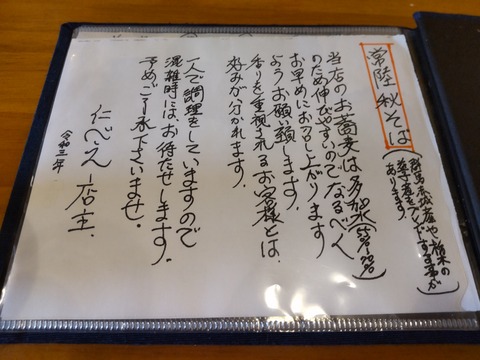 常陸秋そば
(群馬赤城産や栃木の
益子産をブレンドする事が
あります)
当店のお蕎麦は多加水(55%~70%)
のため伸びやすいのでなるべく
お早めにお召し上がります
ようお願い願します。
香りを重視されるお客様とは、
好みが分かれます。
一人で調理をしていますので
混雑時には、お待たせします。
予めご了承下さいませ。
仁べえ 店主.
令和三年